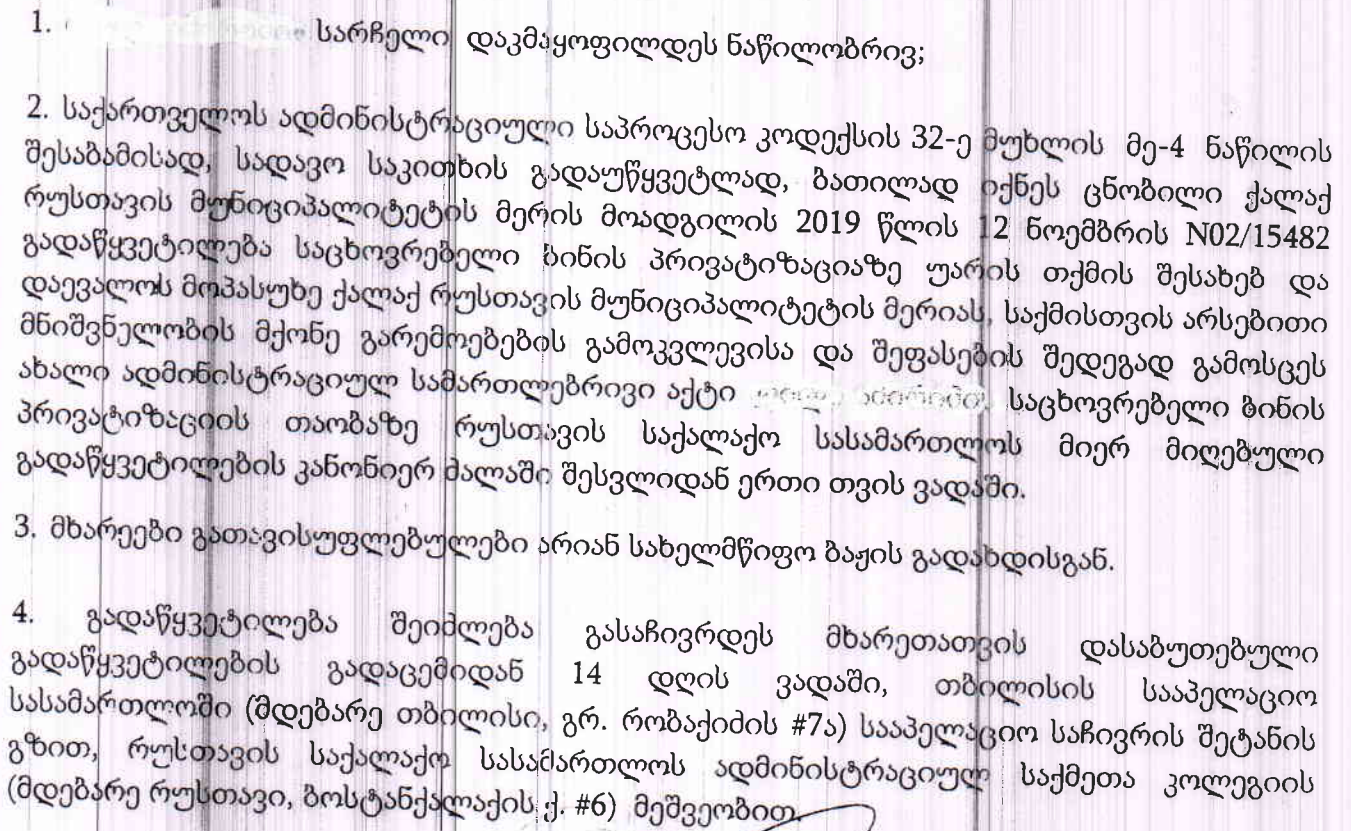 1. სარჩელი დაკმაყოფილდეს ნაწილობრივ;
2. საქართველოს ადმინისტრაციული საპროცესო კოდექსის 32-ე მუხლის მე-4 ნაწილის
შესაბამისად, სადავო საკითხის გადაუწყვეტლად, ბათილად იქნეს ცნობილი ქალაქ
რუსთავის მუნიციპალიტეტის მერის მოადგილის 2019 წლის 12 ნოემბრის N02/15482
გადაწყვეტილება საცხოვრებელი ბინის პრივატიზაციაზე უარის თქმის შესახებ და
დაევალოს მოპასუხე ქალაქ რუსთავის მუნიციპალიტეტის მერიას, საქმისთვის არსებითი
მნიშვნელობის მქონე გარემოებების გამოკვლევისა და შეფასების შედეგად გამოსცეს
ახალი ადმინისტრაციულ სამართლებრივი აქტი საცხოვრებელი ბინის
პრივატიზაციის თაობაზე რუსთავის საქალაქო სასამართლოს მიერ მიღებული
გადაწყვეტილების კანონიერ ძალაში შესვლიდან ერთი თვის ვადაში.
3. მხარეები გათავისუფლებულები არიან სახელმწიფო ბაჟის გადახდისგან.
4. გადაწყვეტილება შეიძლება გასაჩივრდეს მხარეთათვის დასაბუთებული
გადაწყვეტილების გადაცემიდან 14 დღის ვადაში, თბილისის სააპელაციო
სასამართლოში (მდებარე თბილისი, გრ. რობაქიძის #7ა) სააპელაციო საჩივრის შეტანის
გზით, რუსთავის საქალაქო სასამართლოს ადმინისტრაციულ საქმეთა კოლეგიის
(მდებარე რუსთავი, ბოსტანქალაქის ქ. #6) მეშვეობით.